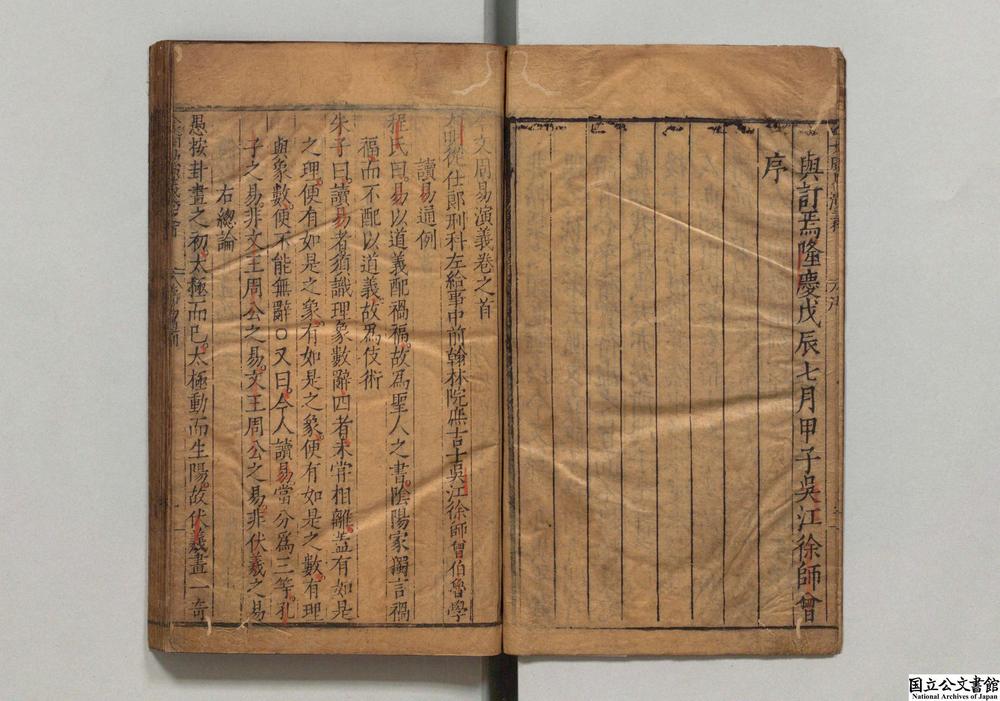 與訂焉隆慶戊辰七月甲子吳江徐師曾
序
今文周易演義卷之首
大明從仕郎刑科左給事中前翰林院庶吉士吳江徐師曾伯魯學
讀易通例
程氏曰易以道義配禍福故爲聖人之書陰陽家獨言禍
福而不配以道義故爲伎術
朱子曰讀易者須識理象數辭四者未甞相離盖有如是
之理便有如是之象有如是之象便有如是之數有理
與象數便不能無辭○又曰今人讀易當分爲三等孔
子之易非文王周公之易文王周公之易非伏羲之易
右總論
愚按卦畫之初太極而已太極動而生陽故伏羲畫一奇
国立公文書館
National Archives of Japan